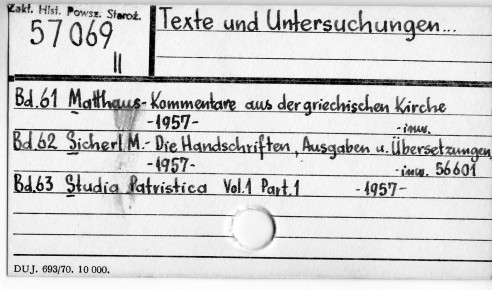 Zakł. Hist. Powsz. Staroż.
57 069
II
Texte und Untersuchungen...
Bd.61 Matthäus-Kommentare aus der griechischen Kirche
-1957- -inw.
Bd.62 Sicherl M.-Die Handschriften, Ausgaben u. Übersetzungen
-1957- -inw. 56601
Bd.63 Studia Patristica Vol.1 Part.1 -1957-
DUJ. 693/70. 10 000.